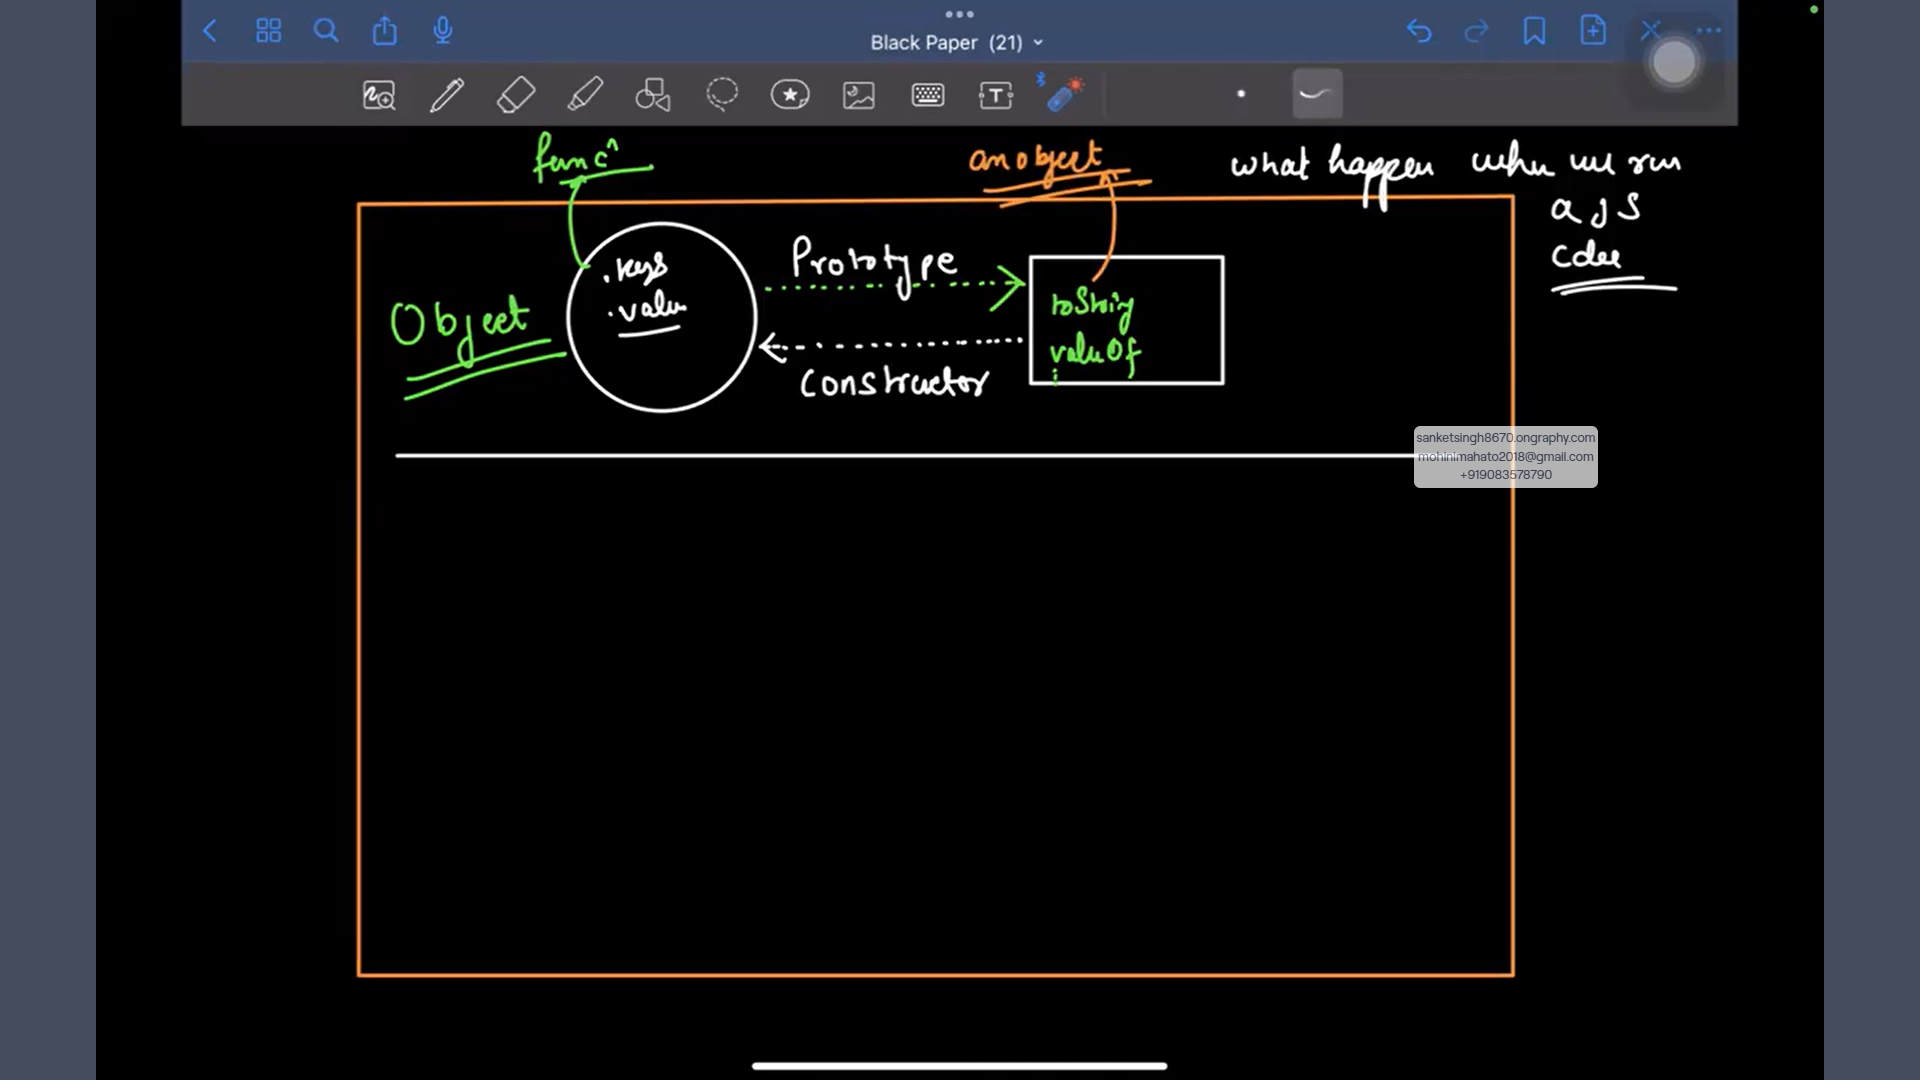 Black Paper (21)
funcⁿ
an object
what happen when we run
a JS
Code
Object
.keys
.value
Prototype
constructor
toString
valueOf
sanketsingh8670.ongraphy.com
mohinimahato2018@gmail.com
+919083578790